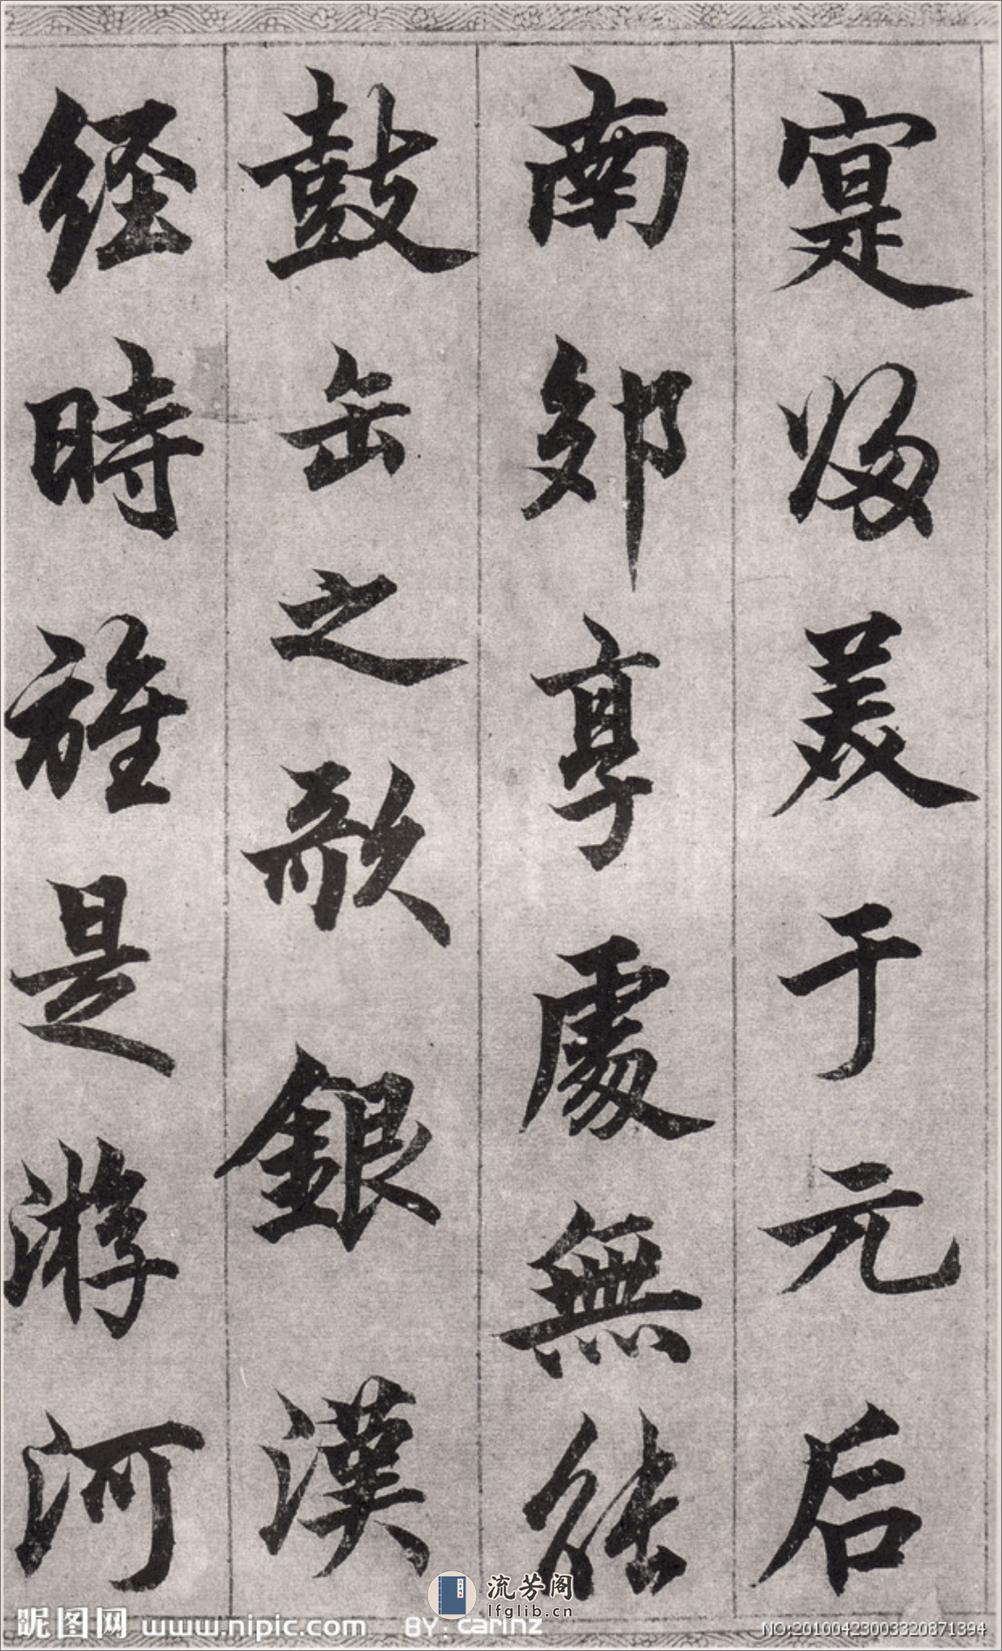 寔歸美于元后
南郊享處無能
鼓缶之歌銀漢
經時是游河
流芳阁
lfglib.cn
昵图网 www.nipic.com BY: carinz
NO:20100423003320871394